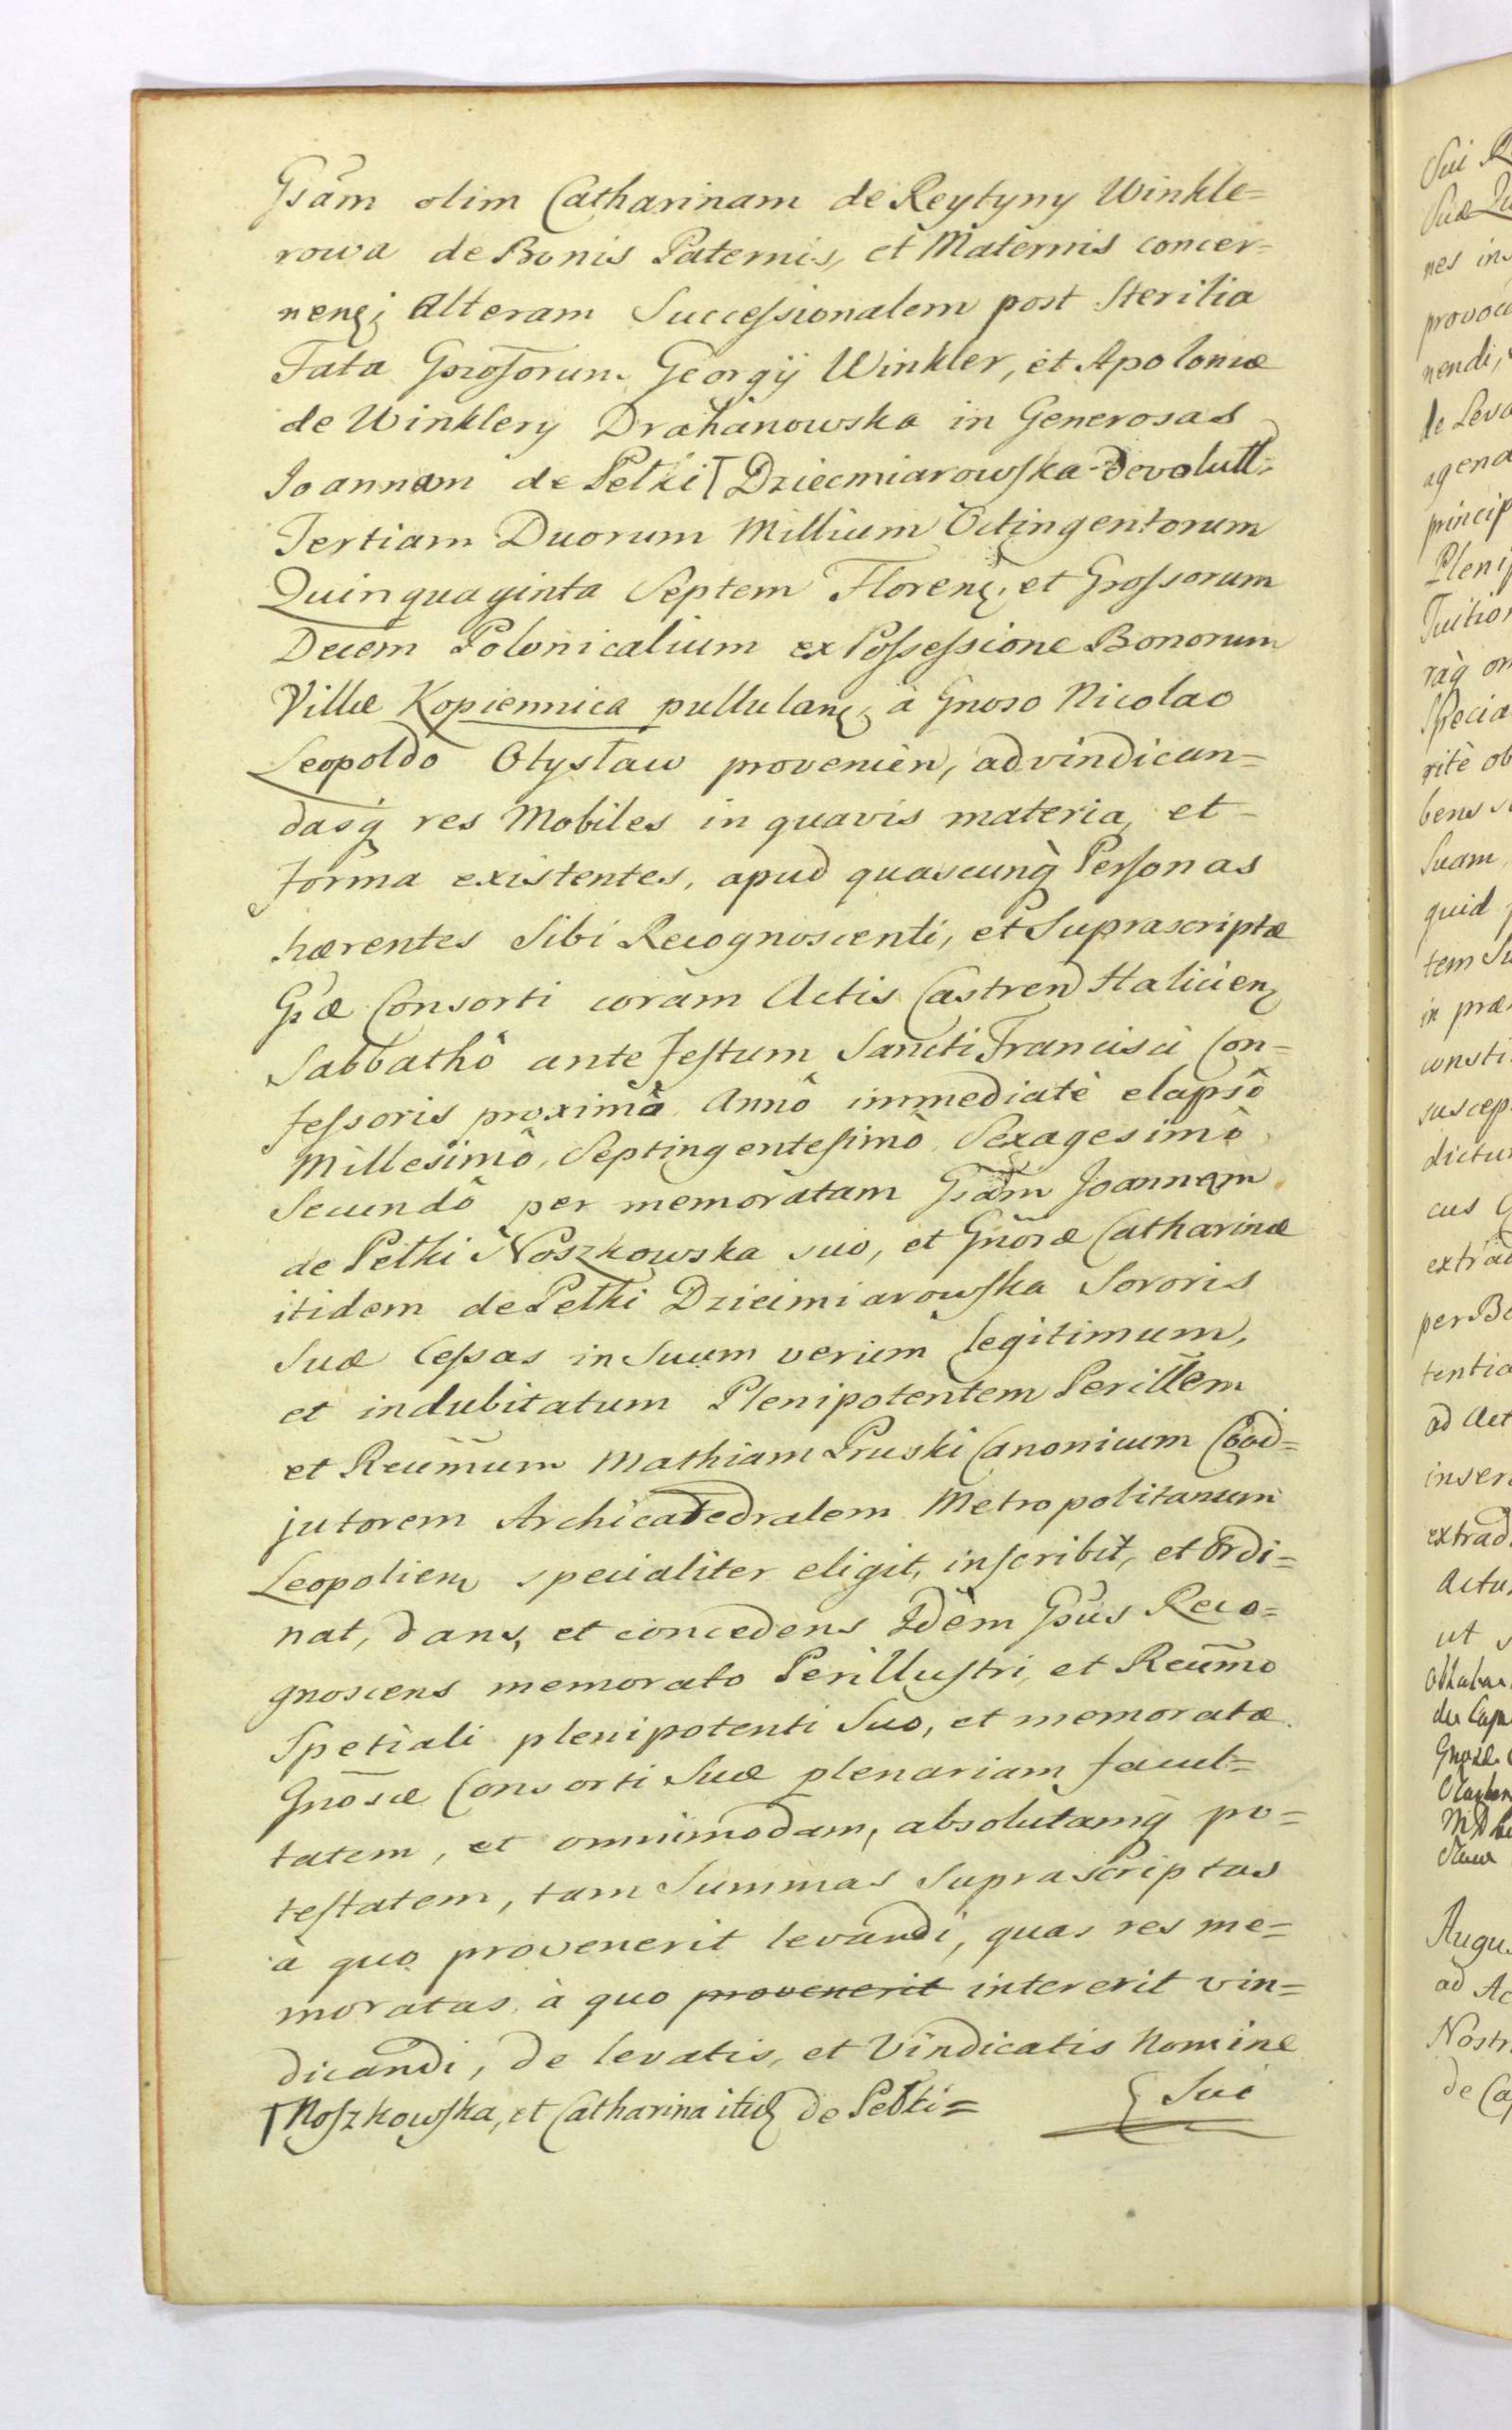 Gsam olim Catharinam de Reytyny Winkle=
rowa de Bonis Paternis, et Maternis concer=
nenę; Alteram Successionalem post Sterilia
Fata Gnrosorum Georgij Winkler, et Apoloniæ
de Winklery Drahanowska in Generosas
Joannam de Petki⌈ Dziecmiarowska devolutt.
Tertiam Duorum Millium Octingentorum
Quinquaginta Septem Florenę, et Grossorum
Decem Polonicalium ex Possessione Bonorum
Villæ Kopiennica pullulanę, à Gnoso Nicolao
Leopoldo Olystaw provenien, advindican=
dasq́ res Mobiles in quavis materia, et
forma existentes, apud quascunq̀ Personas
hærentes Sibi Recognoscenti, et Suprascriptæ
Gsæ Consorti coram Actis Castren Halicienę
Sabbathô ante Festum Sancti Francisci Con=
fessoris proximô Annô immediatè elapsô
Millesimô, Septingentesimô Sexagesimô
Secundô per memoratam Gsam Joannam
de Petki Noszkowska suo, et Gnosæ Catharinæ
itidem de Petki Dziecimiarowska Sororis
Suæ Cessas in Suum verum legitimum,
et indubitatum Plenipotentem Perillem
et Reumum Mathiam Pruski Canonicum Coad=
jutorem Archicatedralem Metropolitanum
Leopolienę specialiter eligit, inscribit, et Ordi=
nat, dans, et concedens Idem Gsus Reco=
gnoscens memorato Perillustri, et Reumo
Spetiali plenipotenti Suo, et memoratæ
Gnosæ Consorti Suæ plenariam facul=
tatem, et omnimodam, absolutamq̀ po=
testatem, tam Summas Suprascriptas
à quo provenerit levandi, quas res me=
moratas à quo provenerit intererit vin=
dicandi, de levatis, et Vindicatis Nomine
⌈Noszkowska, et Catharina itid de Petki= Sui
Sui
nes
nendi,
agend
princip
Tuition
rità ob
Suam
quid
tem
in
consti
suscep
extrad
tentia
ad Act
extrad
Actu
ut
Augu
ad Ac
Nostr
de Ca